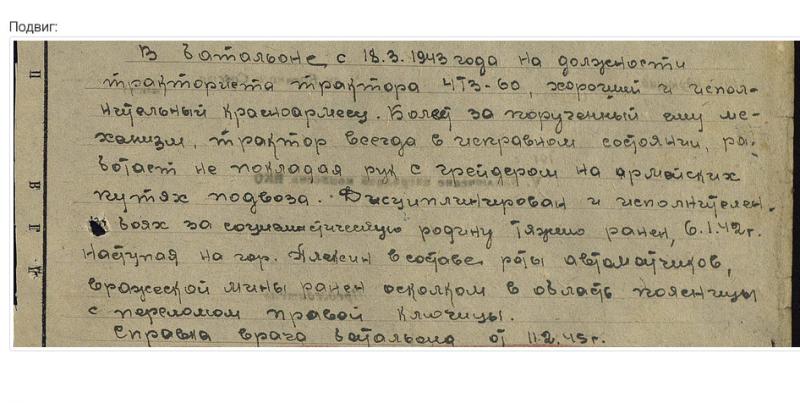 Подвиг:
В батальоне с 18.3.1943 года на должности
тракториста трактора ЧТЗ-60, хороший и испол-
нительный красноармеец. Болеет за порученный ему ме-
ханизм, трактор всегда в исправном состоянии, ра-
ботает не покладая рук с грейдером на армейских
путях подвоза. Дисциплинирован и исполнителен.
В боях за социалистическую родину тяжело ранен, 6.1.42 г.
наступая на гор. Алексин в составе роты автоматчиков,
вражеской мины ранен осколком в область поясницы
с переломом правой ключицы.
Справка врача батальона от 11.2.45 г.